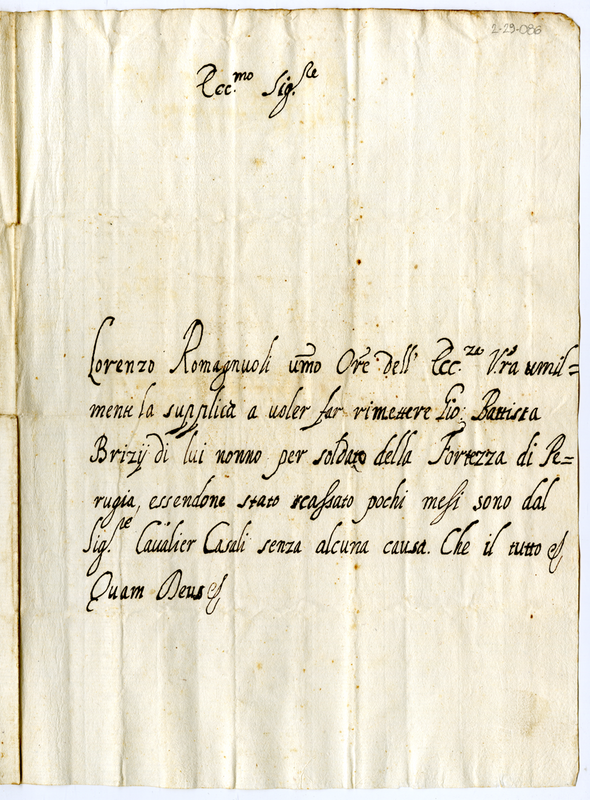 2-29-086
Ecc.mo Sig.re
Lorenzo Romagnuoli umo Ore dell' Ecc.ze Vra umil=
mente la supplica a voler far rimettere Gio: Battista
Brizij di lui nonno per soldato della Fortezza di Pe=
rugia, essendone stato scassato pochi mesi sono dal
Sig.re Cavalier Casali senza alcuna causa. Che il tutto
Quam Deus